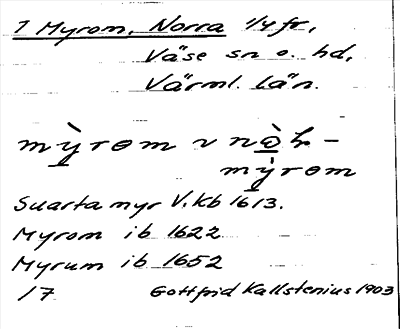 1 Myrom, Norra 1/4 fr,
Väse sn o. hd,
Värml. län.
mỳrom v nò̱ʰr-
mỳrom
Suartamyr V. kb 1613.
Myrom ib 1622
Myrum ib 1652
17 Gottfrid Kallstenius 1903